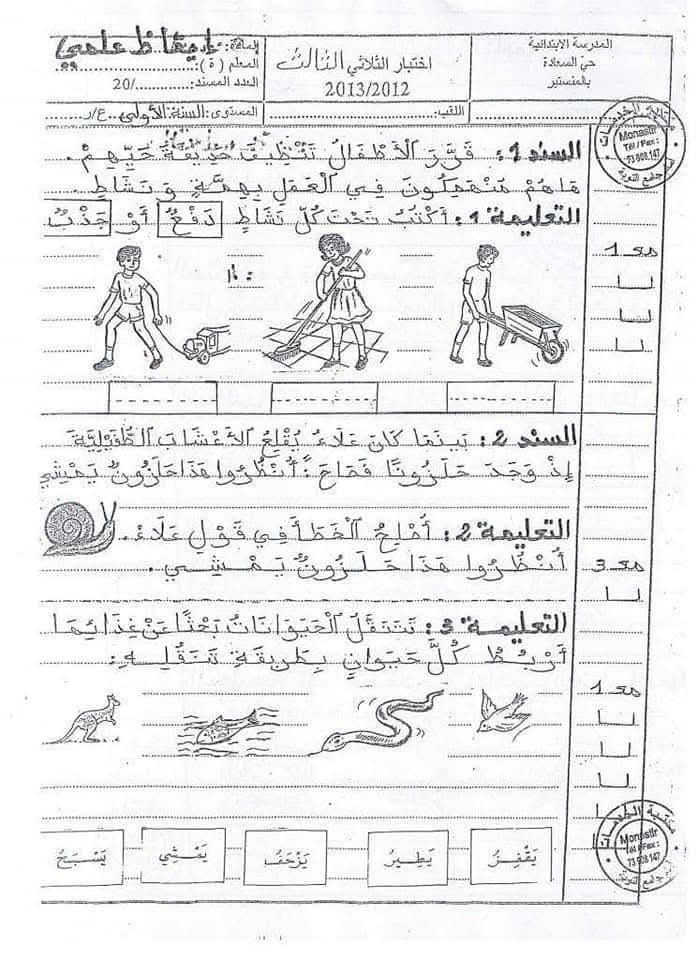 المدرسة الابتدائية
حيّ السعادة
بالمنستير
اختبار الثلاثي الثالث
2013/2012
المادة: إيقاظ علمي
المعلم (ة):
العدد المسند: ............/20
اللقب:
المستوى: السنة الأولى ع/ر
السند 1: قَرَّرَ الْأَطْفَالُ تَنْظِيفَ حَدِيقَةِ حَيِّهِمْ.
هَاهُمْ مُنْهَمِكُونَ فِي الْعَمَلِ بِهِمَّةٍ وَنَشَاطٍ.
التعليمة 1: أَكْتُبُ تَحْتَ كُلِّ نَشَاطٍ دَفْعٌ أَوْ جَذْبٌ
مع 1
السند 2: بَيْنَمَا كَانَ عَلَاءُ يُقْلِعُ الْأَعْشَابَ الطُّفَيْلِيَّةَ
إِذْ وَجَدَ حَلَزُونًا فَصَاحَ: أُنْظُرُوا هَذَا حَلَزُونٌ يَمْشِي
التعليمة 2: أُصْلِحُ الْخَطَأَ فِي قَوْلِ عَلَاءَ.
أُنْظُرُوا هَذَا حَلَزُونٌ يَمْشِي.
مع 3
التعليمة 3: تَتَنَقَّلُ الْحَيَوَانَاتُ بَحْثًا عَنْ غِذَائِهَا
أَرْبُطُ كُلَّ حَيَوَانٍ بِطَرِيقَةِ تَنَقُّلِهِ:
مع 1
يَقْفِزُ
يَطِيرُ
يَزْحَفُ
يَمْشِي
يَسْبَحُ
مكتبة الخدمات
Monastir
Tél / Fax :
73 908 147
مكتبة الخدمات
Monastir
Tél / Fax :
73 908 147